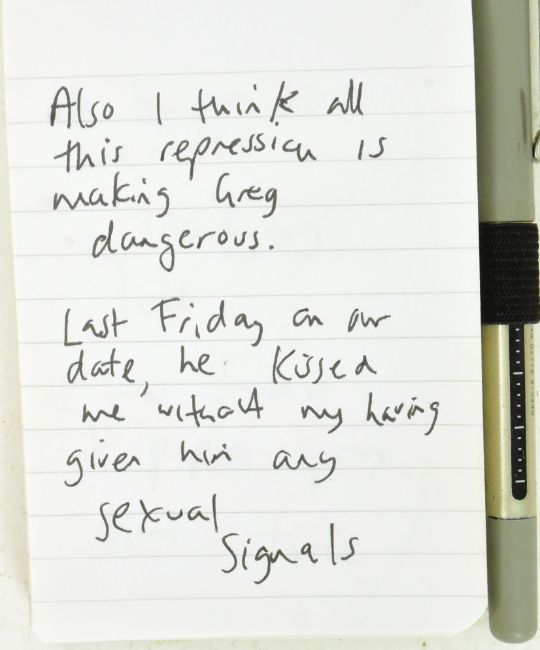 Also I think all
this repression is
making Greg
dangerous.
Last Friday on our
date, he kissed
me without my having
given him any
sexual
signals